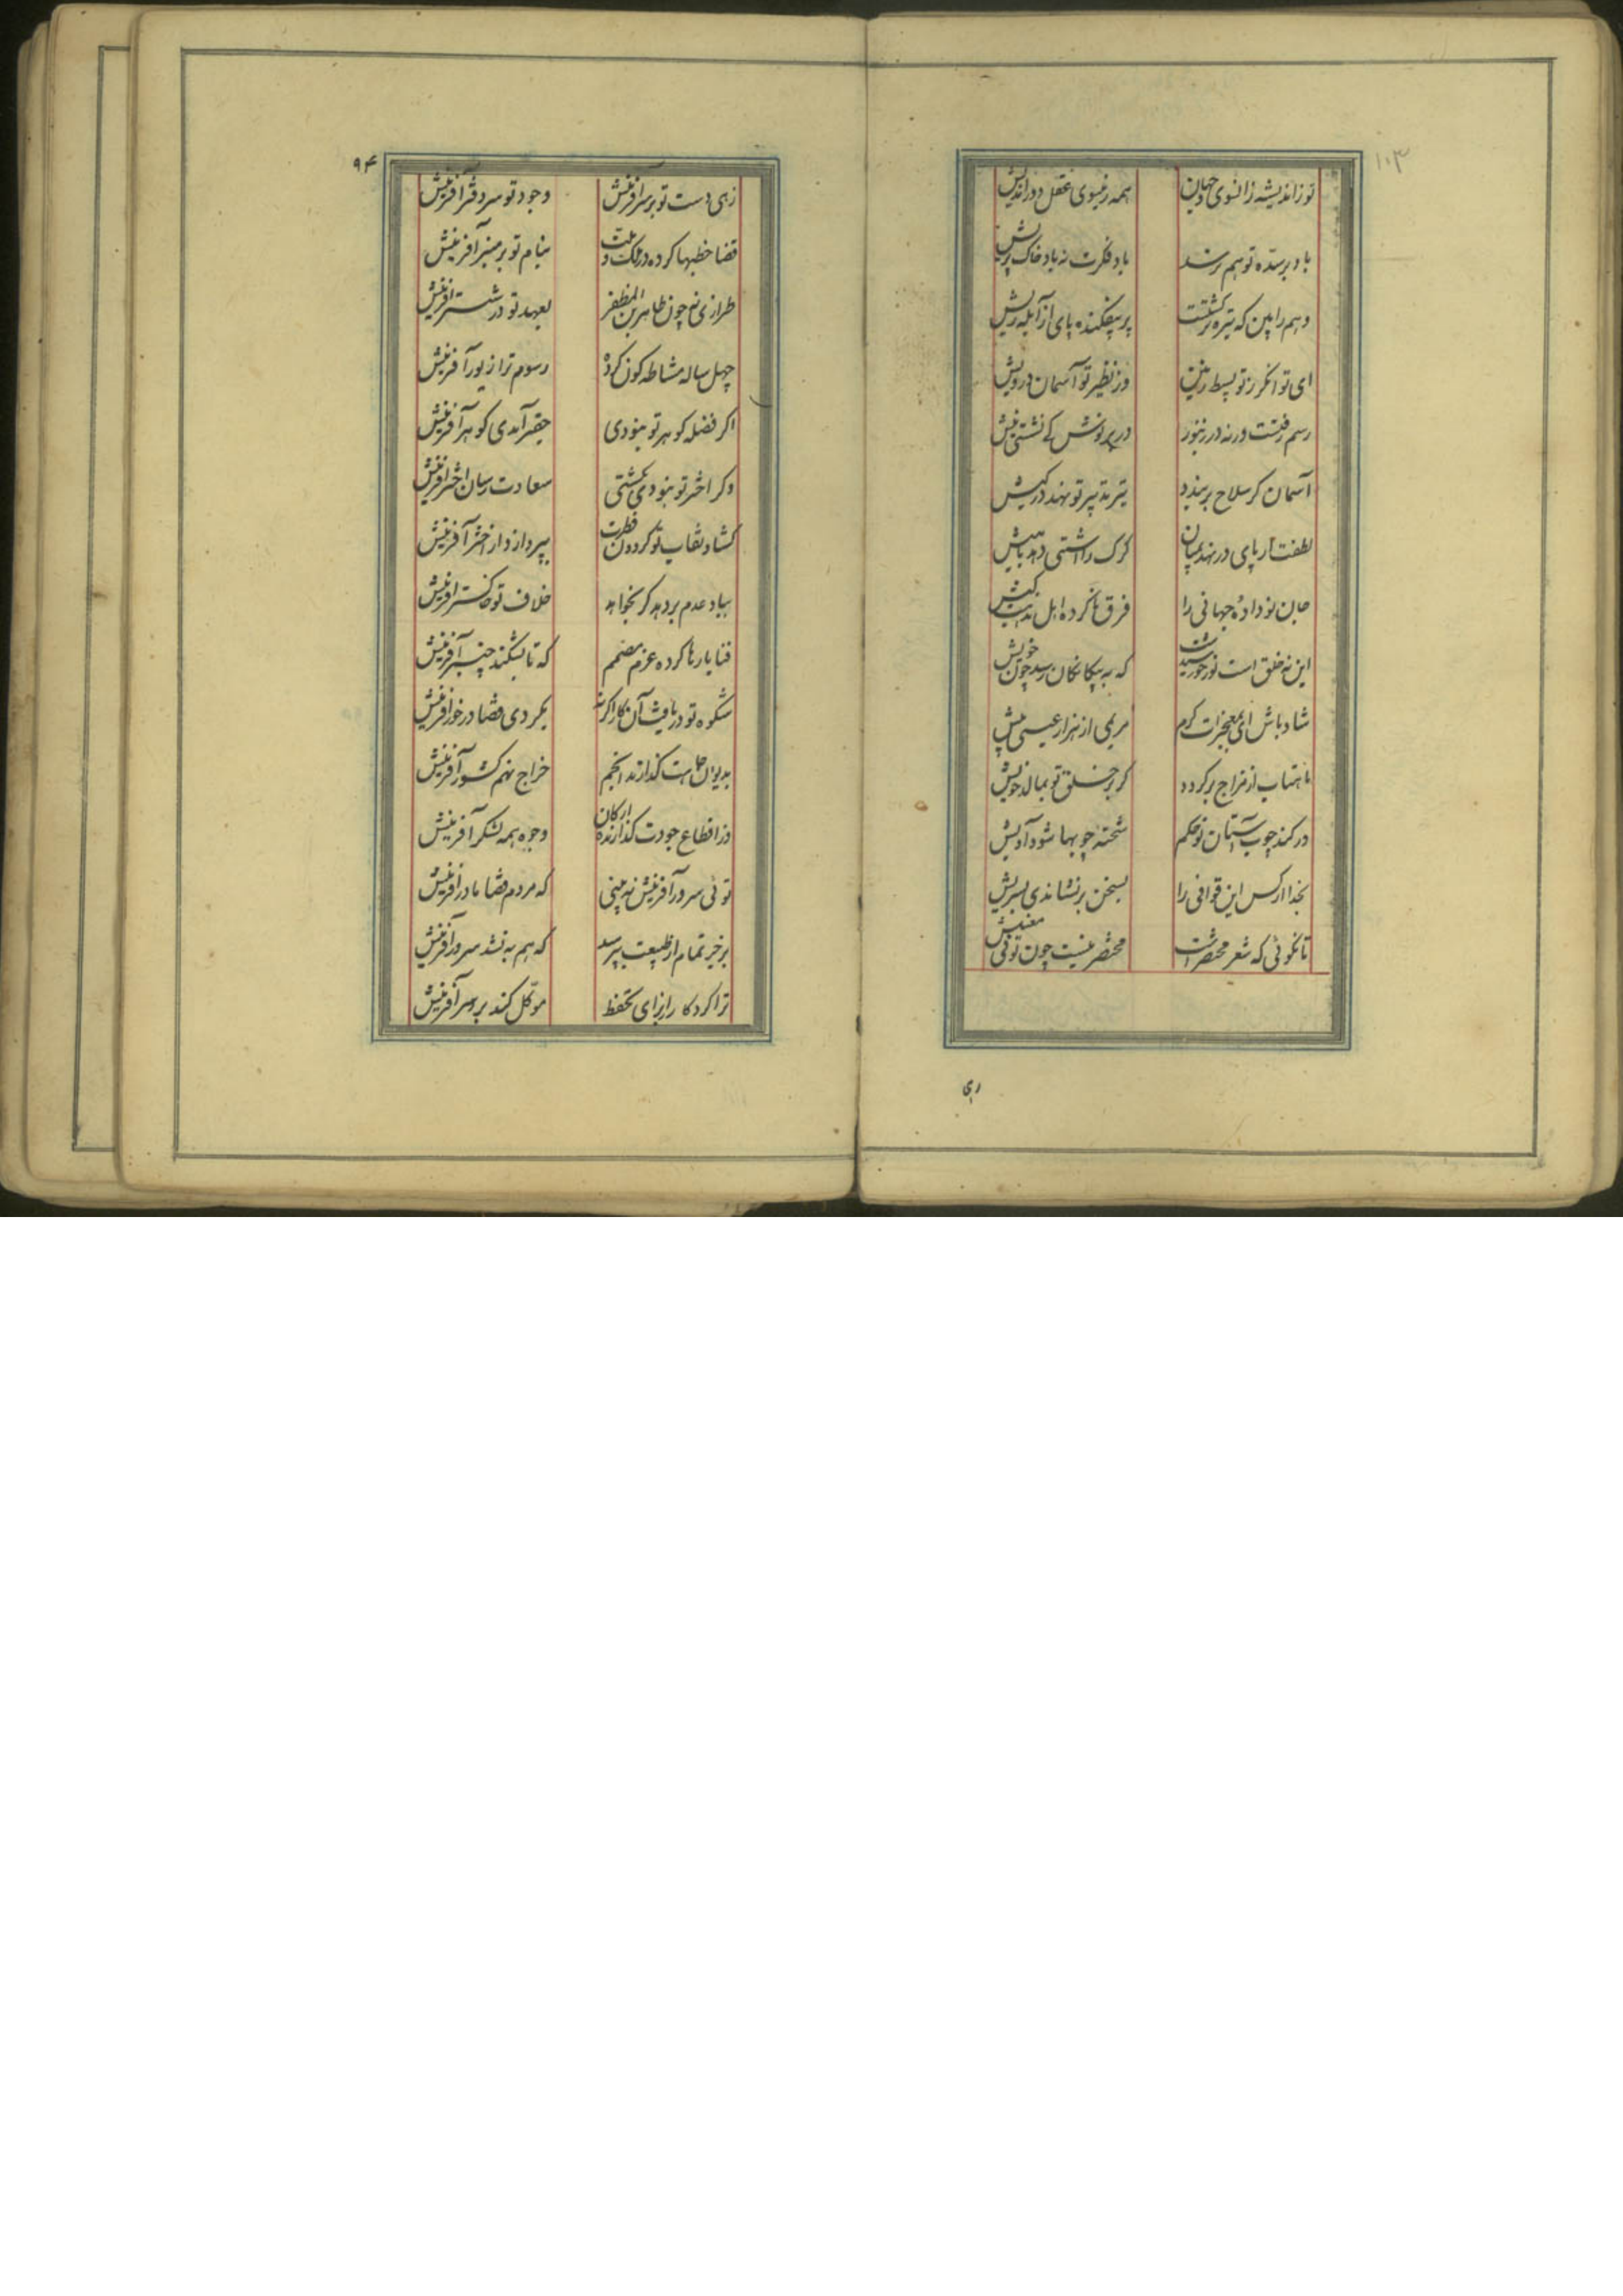 ۱۰۳
تو ز اندیشه زانسوی جهان همه زینسوی عقل دوراندیش
باد بر سده تو هم نرسد باد فکرت نه باد خاک پریش
وهم را بین که تیره برگشتت پر بیفکنده پای از آبله ریش
ای توانکر ز تو بسیط زمین وز نظیر تو آسمان درویش
رسم رفتست ورنه در زنبور در بر نوش کی نشستی نیش
آسمان کر سلاح بربندد تیر تدبیر تو نهد در کیش
لطفت ار پای درنهد بمیان کرک را آشتی دهد با میش
جان نو داده جهانی را فرق ناکرده اهل مذهب کیش
این نه خلق است نور خورشیدست که به بیکانکان رسد چون خویش
شاد باش ای بمعجزات کرم مریمی از هزار عیسی بیش
ماهتاب از مزاج برکردد کر بر خلق تو بمالد خویش
در کند چوب آستان تو حکم شحنه چوبها شود آدیش
بخدا ار کس این قوافی را بسخن برنشاندی بسریش
تا نکوئی که شعر مختصرست مختصر نیست چون توئی معنیش
ری
۹۴
زهی دست تو بر سر آفرینش وجود تو سر دفتر آفرینش
قضا خطبها کرده در ملک و ملت بنام تو بر منبر آفرینش
طرازی نه چون طاهر بن المظفر بعهد تو در ششتر آفرینش
چهل ساله مشاطه کون کرده رسوم ترا زیور آفرینش
اکر فضله کوهر تو نبودی حقیر آمدی کوهر آفرینش
وکر اختر تو نبودی نکشتی سعادت رسان اختر آفرینش
کشاد نقاب تو کردون فطرت بپرداز دار اختر آفرینش
بباد عدم بردهد کر بخواهد خلاف تو خاکستر آفرینش
فنا بارها کرده عزم مصمم که تا بشکند چنبر آفرینش
شکوه تو دریافت آن کار اکرنه بکردی قضا درخور آفرینش
بدیوان جاهت کذارند انجم خراج نهم کشور آفرینش
در اقطاع جودت کذارنده ارکان وجوه همه لشکر آفرینش
توئی سرور آفرینش نه بینی که مردم قضا مادر آفرینش
بر خیر تمام از طبیعت بپرسد که هم به نشد سرور آفرینش
ترا کردکار از برای تحفظ موکل کند بر سر آفرینش